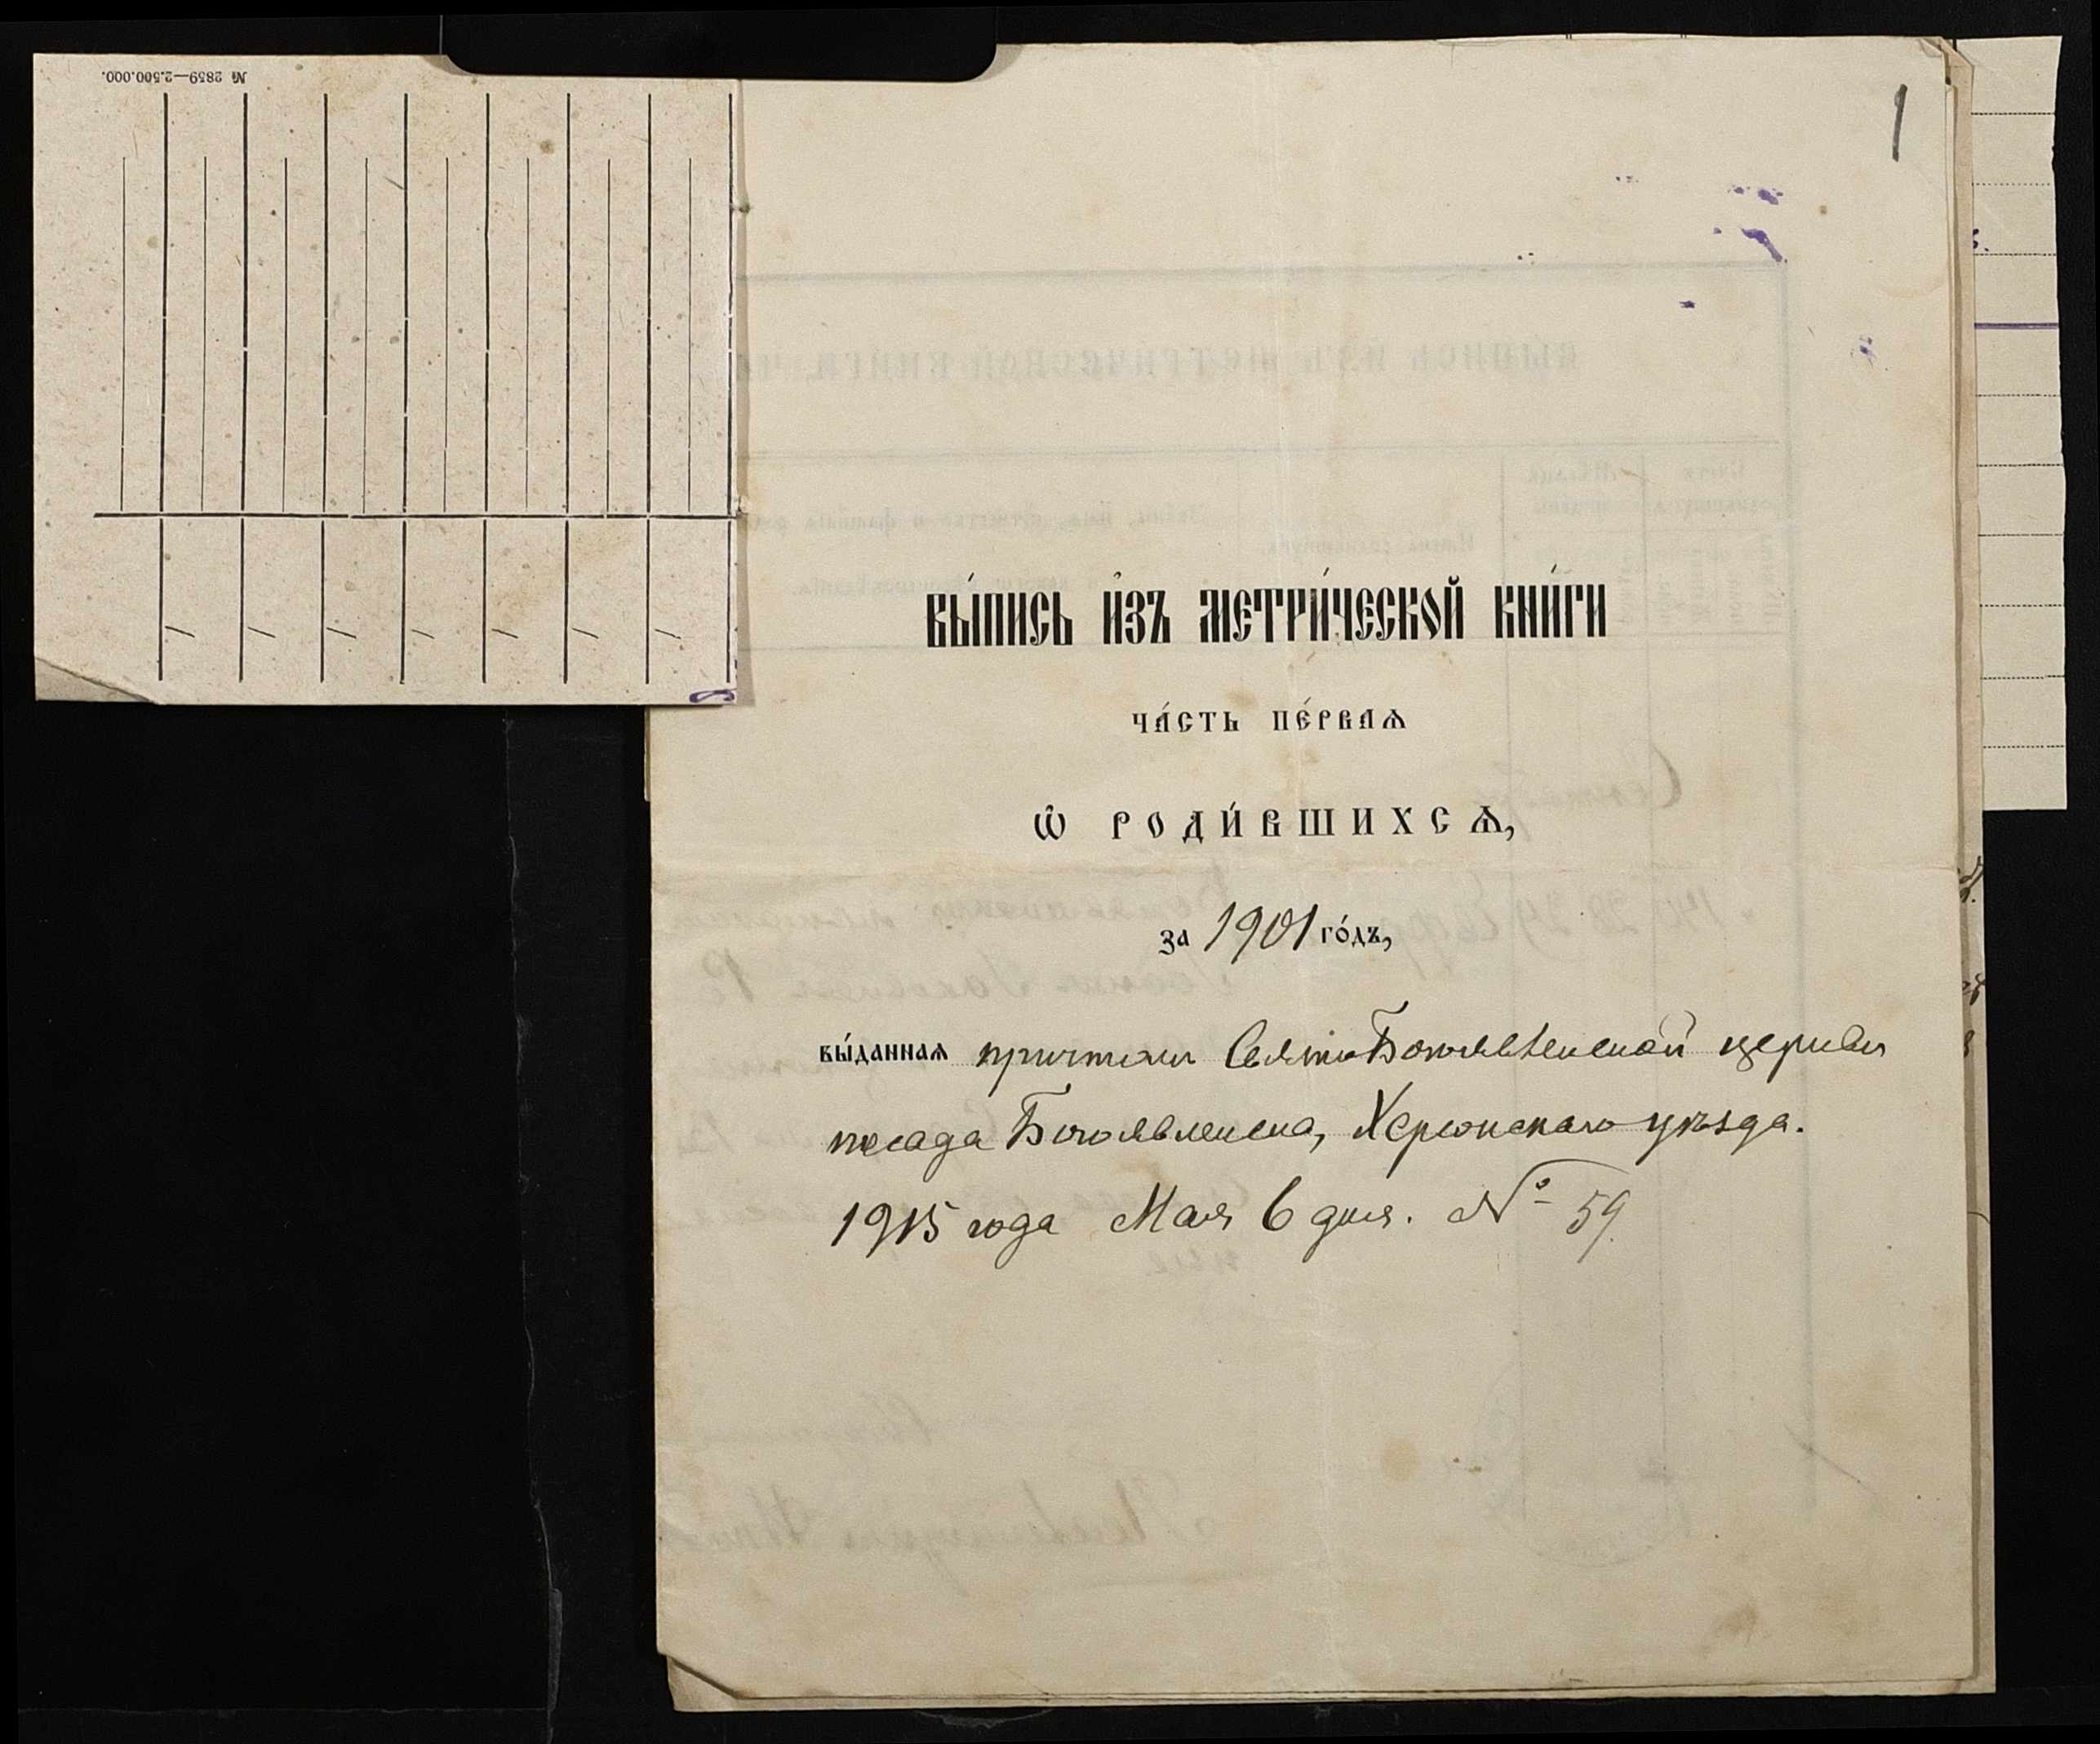 № 2859—2.500.000.
1
ВЫ́ПИСЬ И҆ЗЪ МЕТРИ́ЧЕСКОЙ КНИ́ГИ
ЧА́СТЬ ПЕ́РВАѦ
Ѽ РОДИ́ВШИХСѦ,
за 1901 го́дъ,
вы́даннаѧ причтомъ СвятоБогоявленской церкви
посада Богоявленска, Херсонскаго уѣзда.
1915 года Мая 6 дня. № 59.